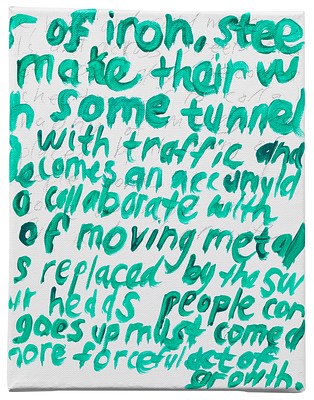 of iron, stee
make their w
n some tunnel
with traffic and
ecomes an accumyld
o collaborate with
of moving metal
s replaced by the sw
ur heads people con
goes up must comed
more forceful act of
growth.